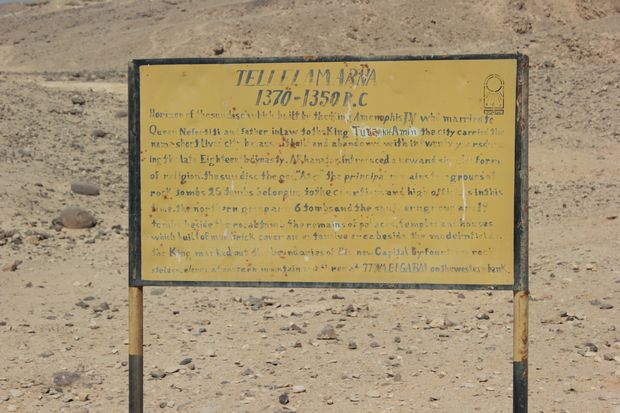 TELL EL AMARNA
1370-1350 B.C
Horizon of the sun disc which built by the king Amenophis IV who married to
Queen Nefertiti and father in law to the King Tutankh Amin the city carried the
name short lived city because it built and abandoned within twenty years
ing the late Eighteenth dynasty. Akhanaton introduced a new and single form
of religion. the sun disc the god "Aton" the principal remains the groups of
rock tombs 25 tombs belonging to the courtiers and high officials in this
time. the northern group are 6 tombs and the southern group are 19
tombs beside the rock tombs the remains of palaces, temples and houses
which built of mud brick cover an extensive area beside the modern fields
the King marked out the boundaries of the new Capital By fourteen rock
stelae, eleven at eastern mountain and three at TUNA EL GABAL on the western bank